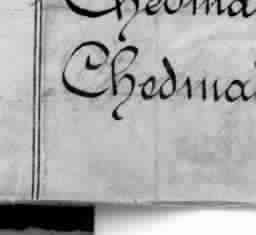 Chedma
Chedma